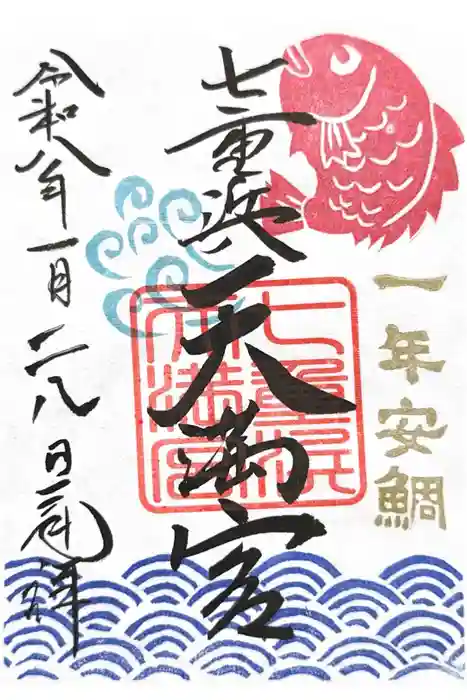 一年安鯛
七重浜天満宮
七重浜
天満宮
令和八年一月二八日拝